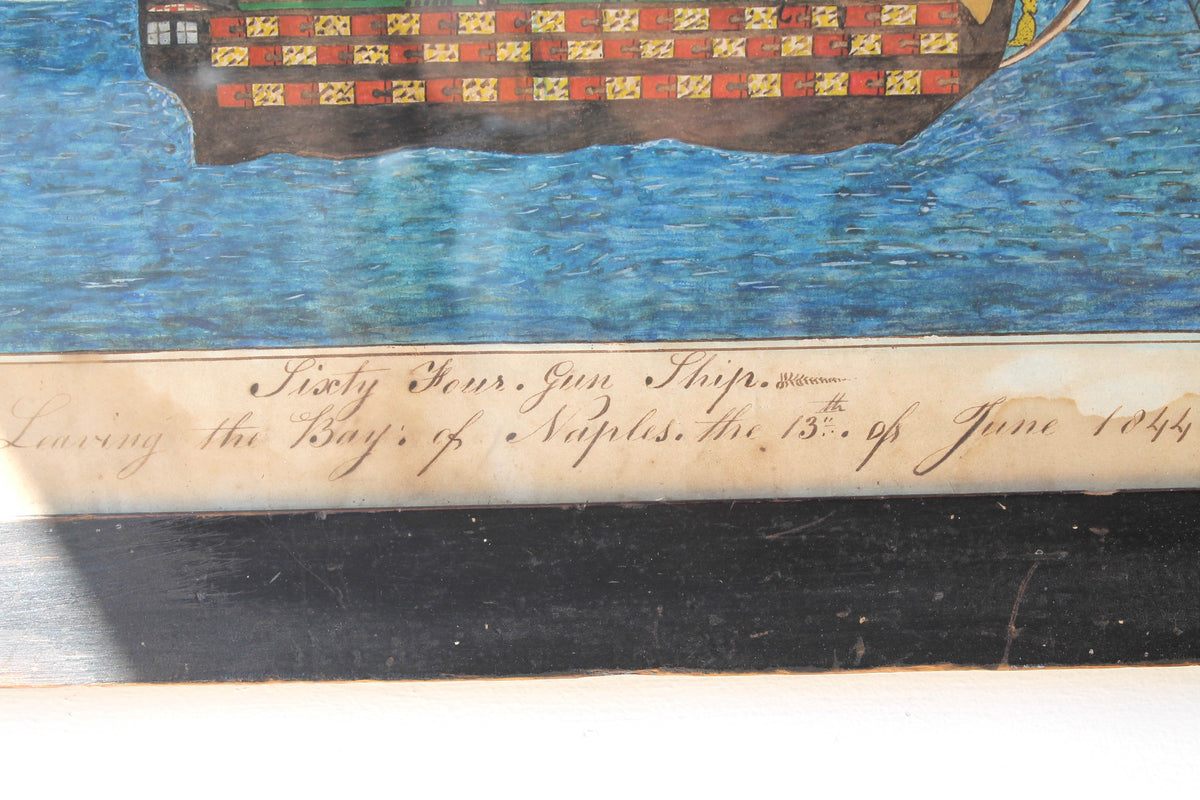 Sixty Four. Gun Ship.
Leaving the Bay: of Naples. the 13th. of June 1844